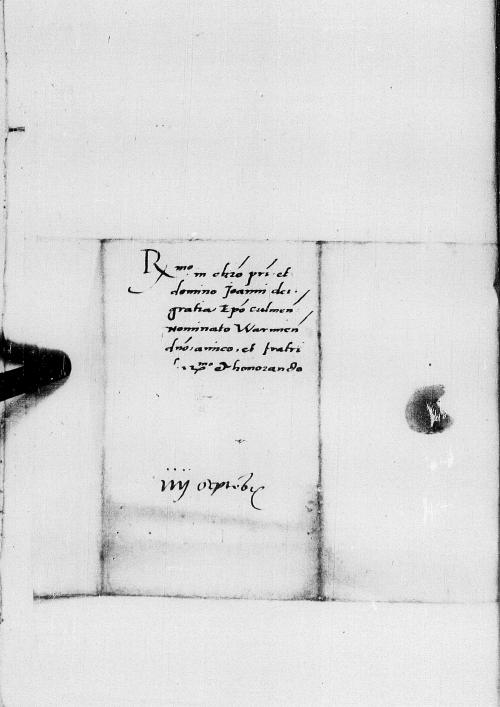 Rmo in chro pri et
domino Joanni dei
gratia Epo culmen
Nominato Warmien
dno amico et fratri
rmo et honorando
iiij